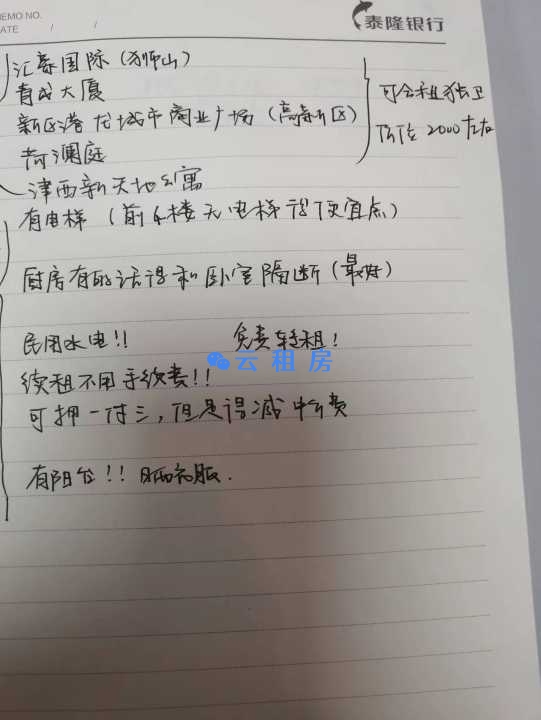 MEMO NO.
DATE / /
泰隆银行
汇豪国际（狮山）
青成大厦
新区港龙城市商业广场（高新区）
荷澜庭
津西新天地公寓
可合租独卫
价位2000左右
有电梯（前4楼无电梯得便宜点）
厨房有的话得和卧室隔断（最好）
民用水电!! 免费转租!
云租房
续租不用手续费!!
可押一付三，但是得减中介费
有阳台!! 晒衣服.